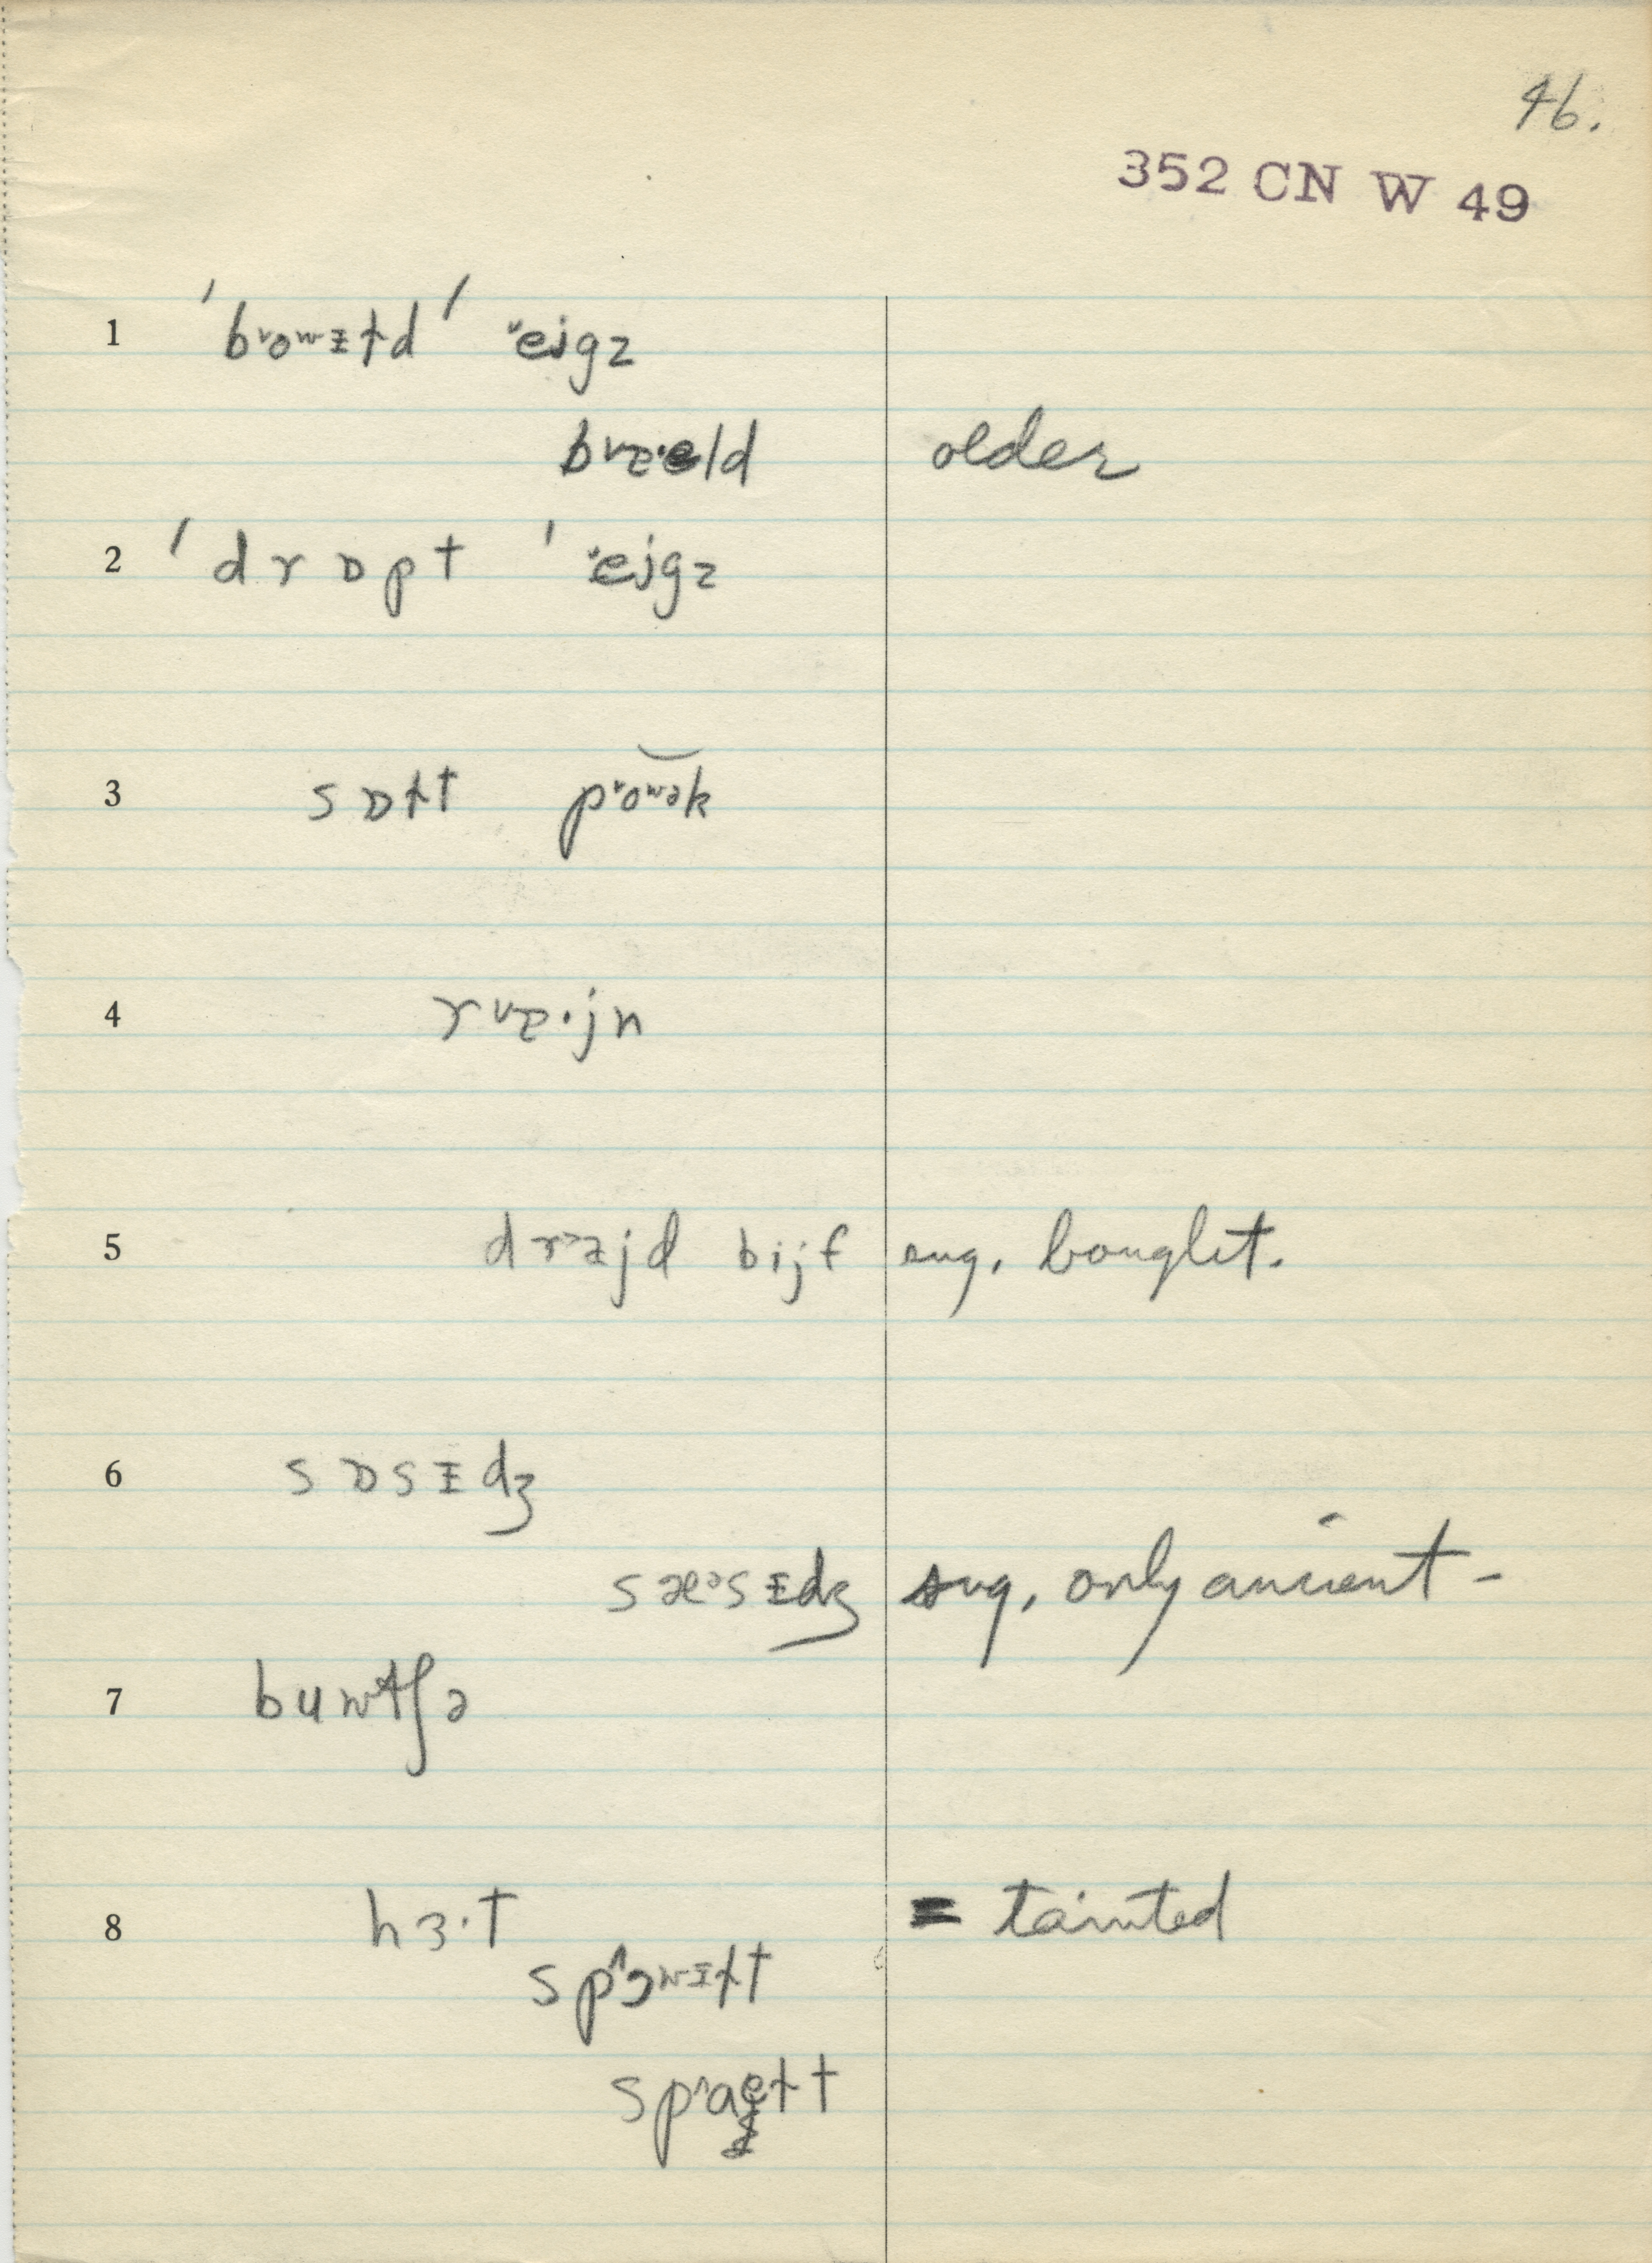 46.
352 CN W 49
1 ˈbˇoʷᵻɫdˈ ˇejgz
bˇɐ·eld older
2 ˈdrɒptˈ ˇejgz
3 sɒɫt pˇoʷək
4 rˇɐ·jn
5 drɐjd bijf sug. bought.
6 sɒsᵻdʒ
sæᵊsᵻdʒ sug. only ancient -
7 buwtʃə
8 hɜ·t = tainted
sp^ɔʷᵻɫt
sp^aeɫt